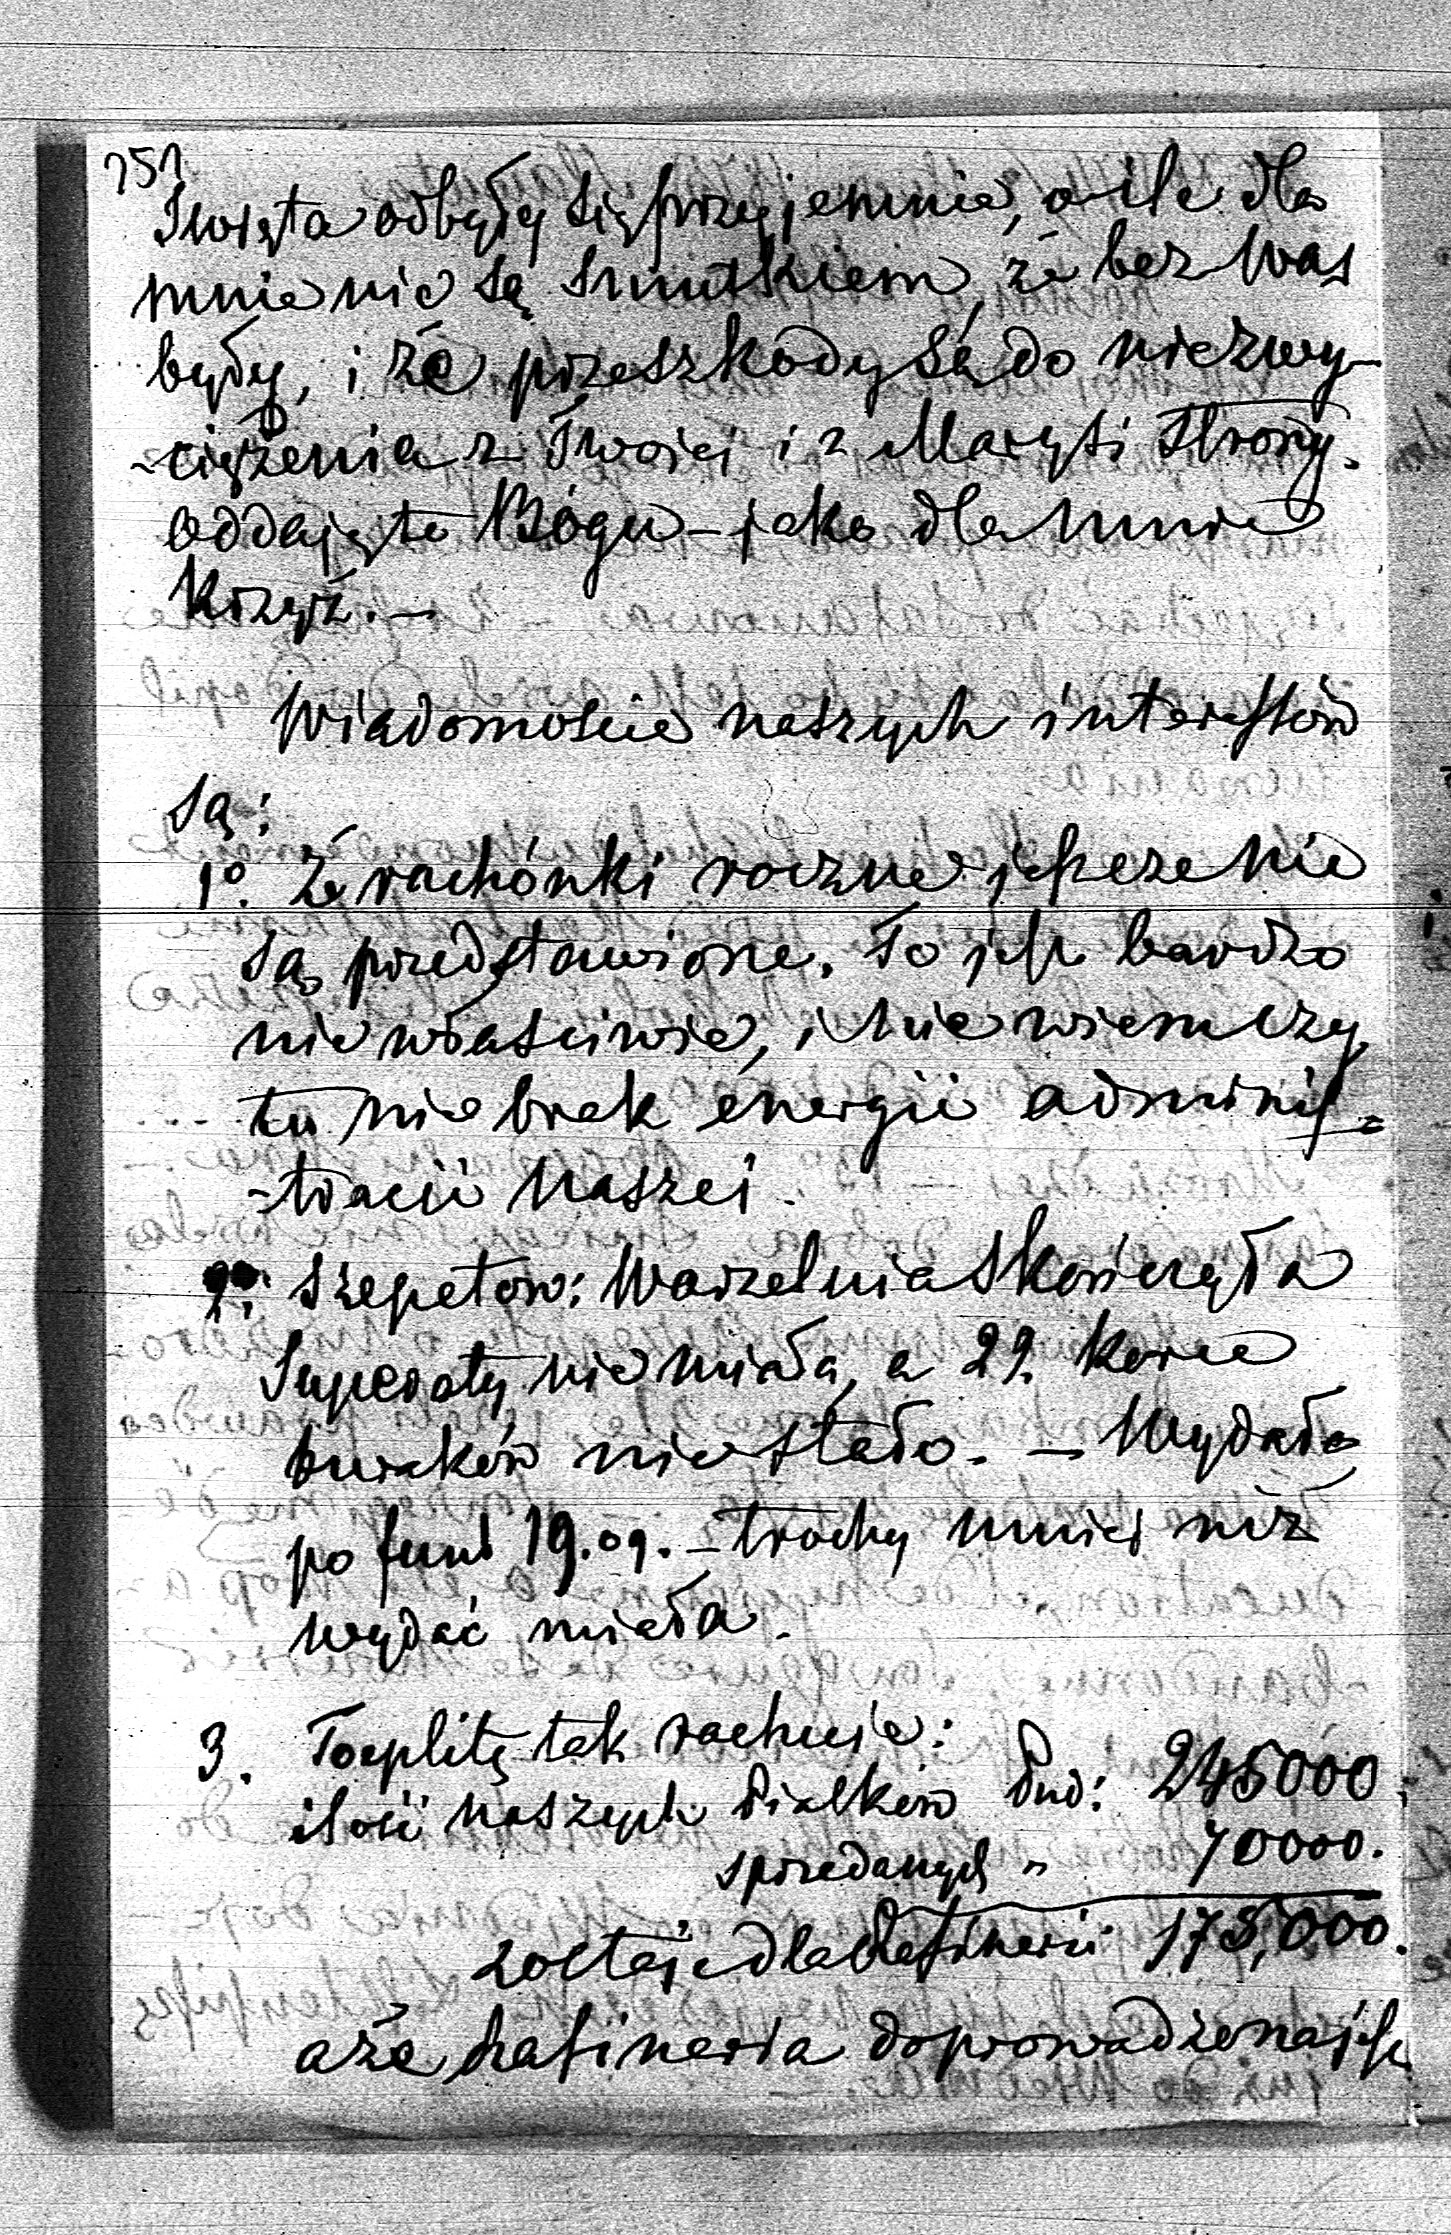 151
Święta odbyły się przyjemnie, o ile dla
mnie nie są smutkiem, że bez Was
były, i że przeszkody są do niezwy-
-ciężenia z Twojej i z Marysi strony.
oddaję to Bogu – jako dla mnie
Krzyż. –
Wiadomoscie naszych interessów
są:
1º. Że rachónki roczne jeszcze nie
są przedstawione. To jest bardzo
niewłaściwie, i nie wiem czy
tu nie brak énergii adminis-
-tracii Naszei.
2º. Szepetow: Warzelnia skończyła
Superaty nie miała, a 29. korce
buraków nie stało. – Wydała
po funt 19.09. – trochę mniei niż
wydać miała.
3. Toeplitz tak rachuie:
ilość naszych Białków Pud: 245000.
sprzedanych " 70000.
zostaje dla Rafinerii 175,000.
a że Rafineria doprowadzona jest